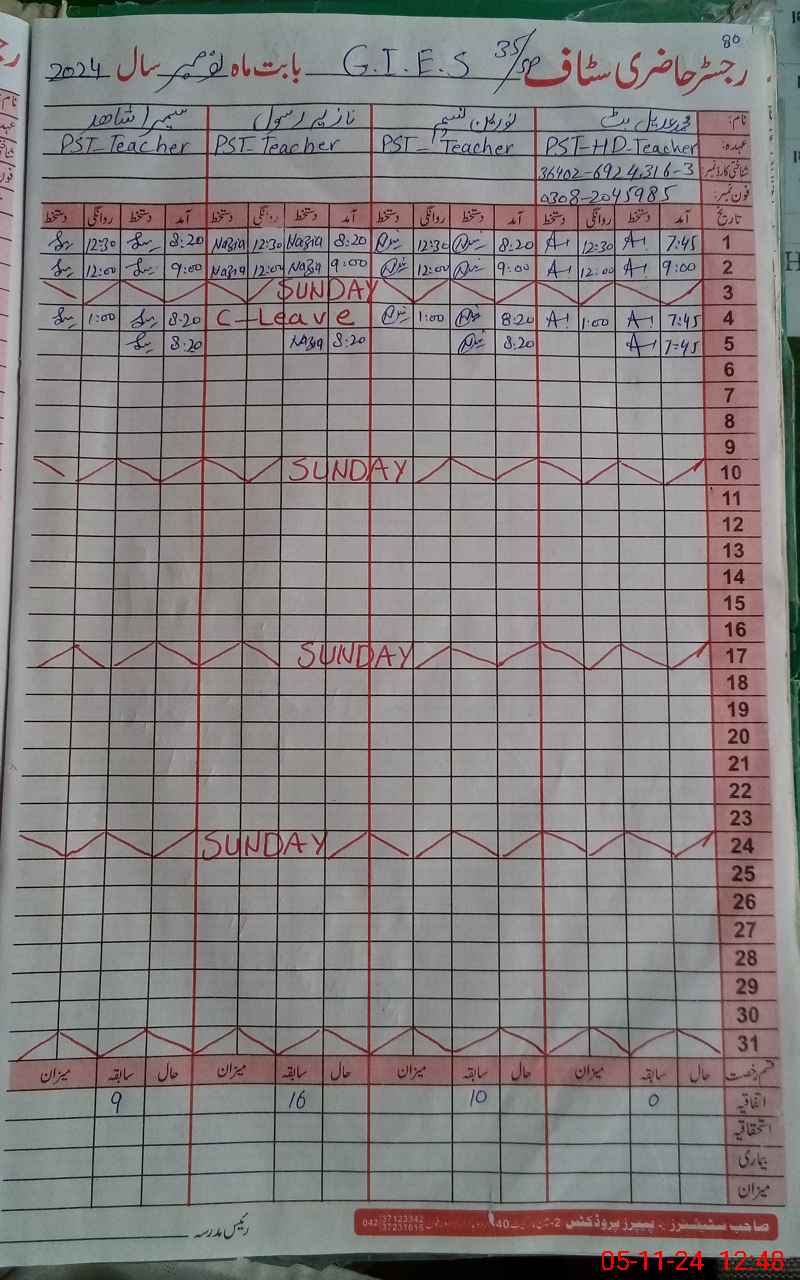 80
رجسٹر حاضری سٹاف 35/SP G.I.E.S بابت ماہ نومبر سال 2024
نام: محمد عدیل بٹ نورین نسیم نازیہ رسول سمیرا شاھد
عہدہ: PST-HD-Teacher PST-Teacher PST-Teacher PST-Teacher
شناختی کارڈ نمبر: 36402-6924316-3
فون نمبر: 0308-2045985
تاریخ آمد دستخط روانگی دستخط آمد دستخط روانگی دستخط آمد دستخط روانگی دستخط آمد دستخط روانگی دستخط
1 7:45 12:30 8:20 12:30 8:20 Nazia 12:30 Nazia 8:20 12:30
2 9:00 12:00 9:00 12:00 9:00 Nazia 12:00 Nazia 9:00 12:00
3 SUNDAY
4 7:45 1:00 8:20 1:00 C-Leave 8:20 1:00
5 7:45 8:20 8:20 Nazia 8:20
6
7
8
9
10 SUNDAY
11
12
13
14
15
16
17 SUNDAY
18
19
20
21
22
23
24 SUNDAY
25
26
27
28
29
30
31
قسم رخصت حال سابقہ میزان حال سابقہ میزان حال سابقہ میزان حال سابقہ میزان
اتفاقیہ 0 10 16 9
استحقاقیہ
بیماری
میزان
رئیس مدرسہ
صاحب سٹیشنرز پیپرز پروڈکٹس 042 37123342 37231615
05-11-24 12:48